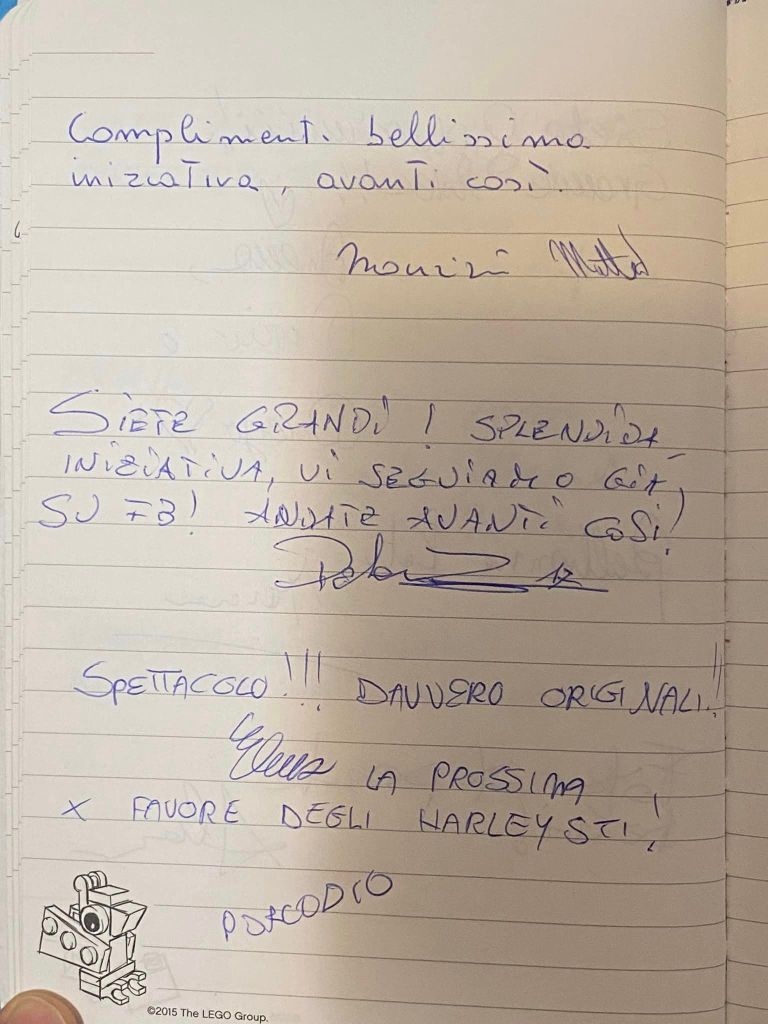 Complimenti bellissima
iniziativa, avanti così.
SIETE GRANDI! SPLENDIDA
INIZIATIVA, VI SEGUIAMO GIÀ
SU FB! ANDATE AVANTI COSÌ!
SPETTACOLO!!! DAVVERO ORIGINALI!!
LA PROSSIMA
X FAVORE DEGLI HARLEYSTI!
PORCODIO
©2015 The LEGO Group.